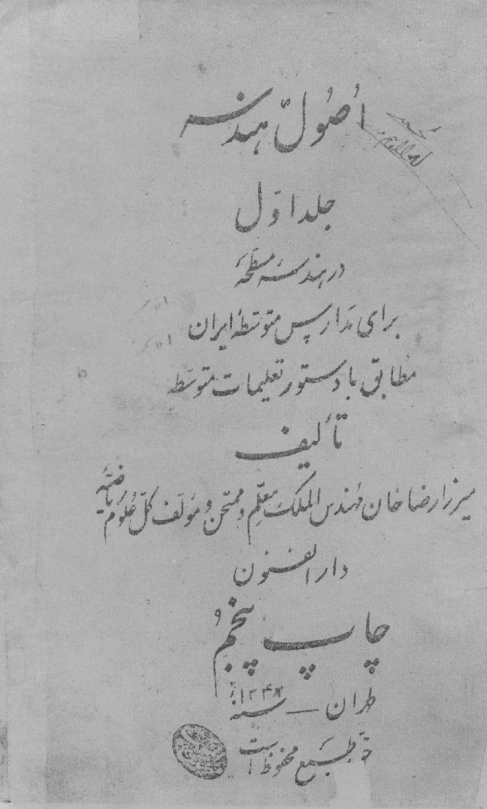 اُصُولِ هندسه
جلد اوّل
در هندسهٔ مسطّحه
برای مدارس متوسّطهٔ ایران
مطابق با دستور تعلیمات متوسّطه
تألیف
میرزا رضا خان مهندس الملک معلّم و ممتحن و مؤلّف کلّ علوم ریاضیّه
دار الفنون
چاپ پنجم
طهران – سنه
حقّ طبع محفوظ است